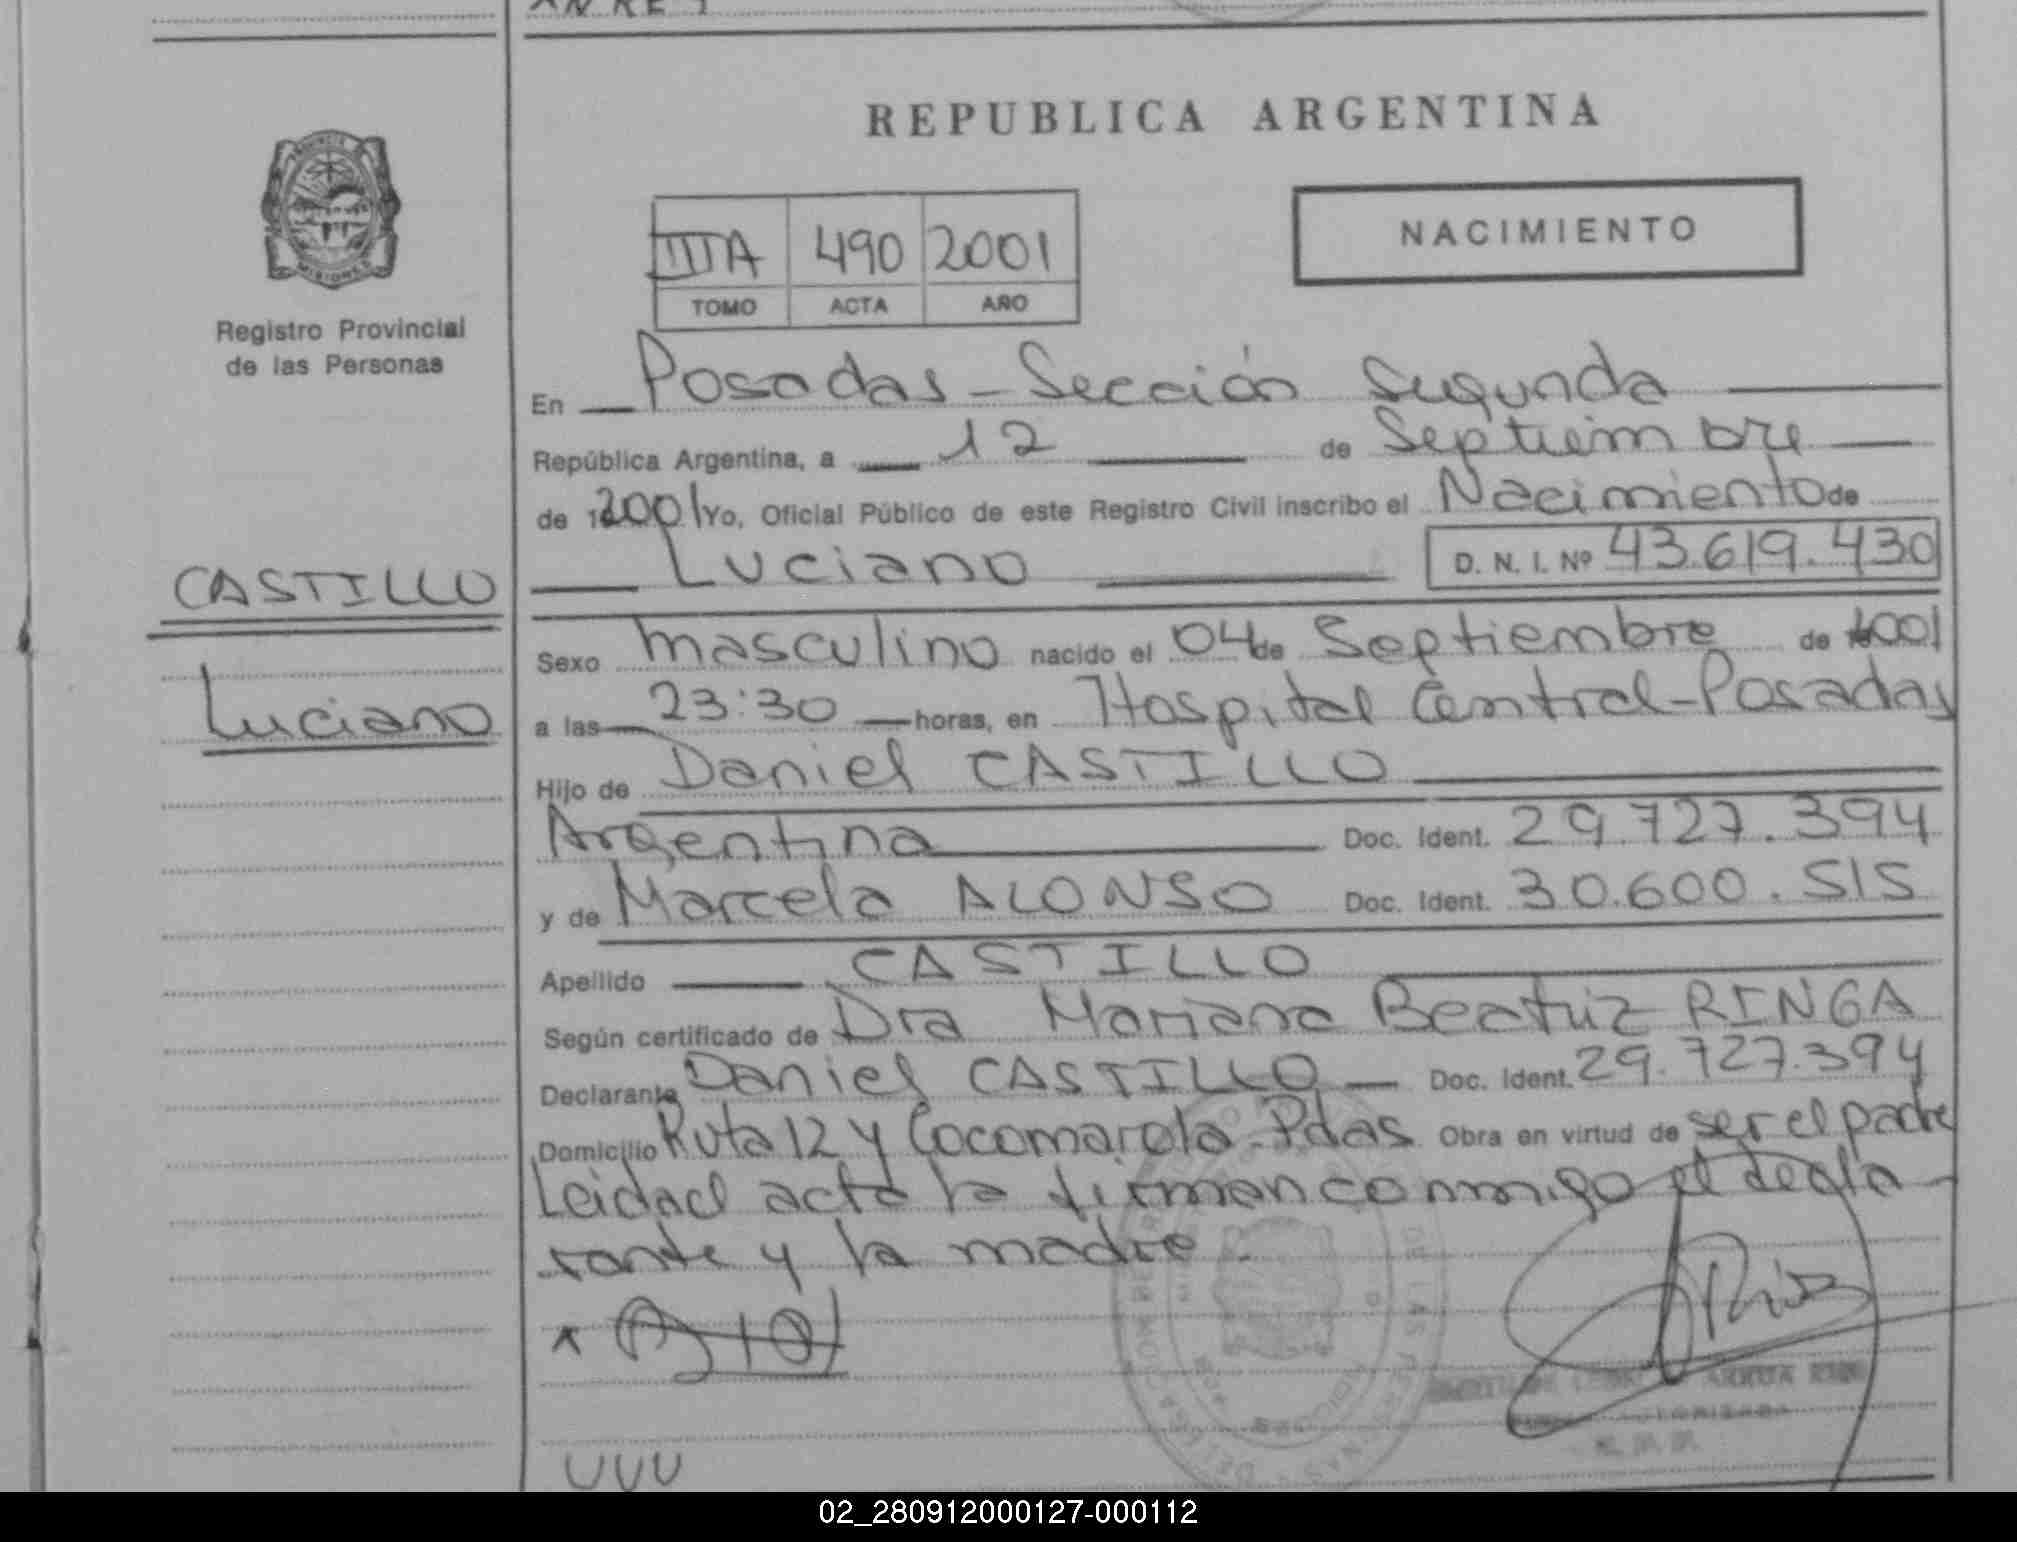 REPUBLICA ARGENTINA
NACIMIENTO
IIIA 490 2001
TOMO ACTA AÑO
MISIONES
Registro Provincial
de las Personas
En Posadas - Sección Segunda
República Argentina, a 12 de Septiembre
de 2001 Yo, Oficial Público de este Registro Civil inscribo el Nacimiento de
Luciano D. N. I. Nº 43.619.430
CASTILLO
Luciano
Sexo masculino nacido el 04 de Septiembre de 2001
a las 23:30 horas, en Hospital Central-Posadas
Hijo de Daniel CASTILLO
Argentina Doc. Ident. 29.727.394
y de Marcela ALONSO Doc. Ident. 30.600.515
Apellido CASTILLO
Según certificado de Dra Mariana Beatriz RINGA
Declarante Daniel CASTILLO Doc. Ident. 29.727.394
Domicilio Ruta 12 y Cocomarola Pdas Obra en virtud de ser el padre
Leida el acta la firman conmigo el decla-
rante y la madre.
02_280912000127-000112